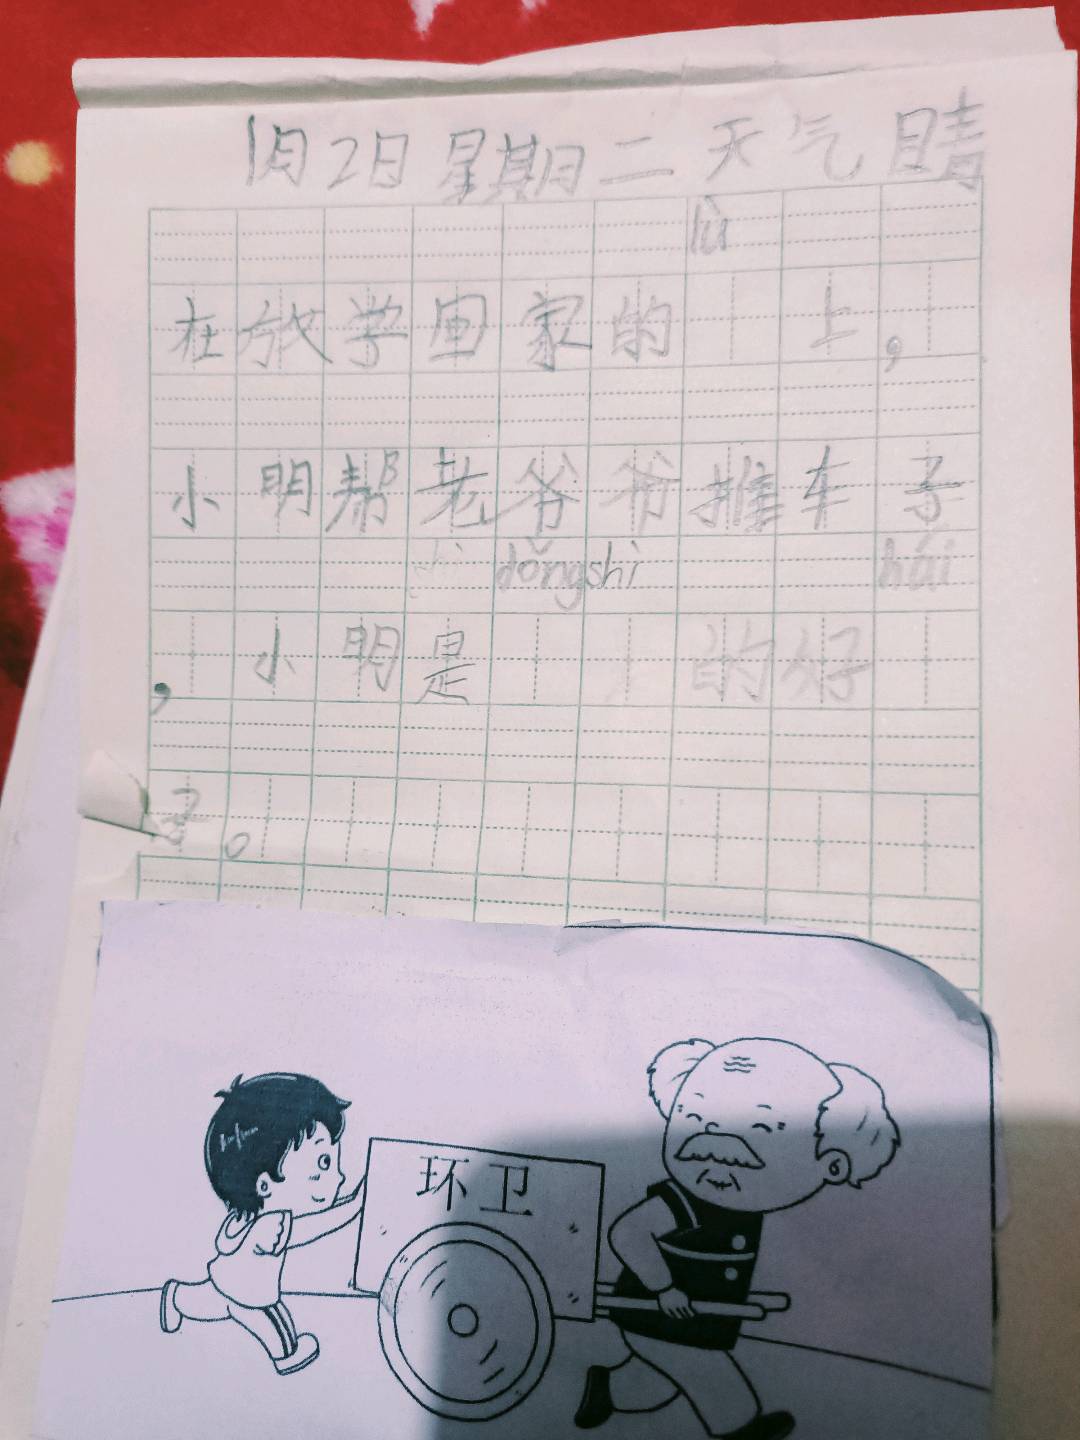 1月2日 星期二 天气 晴
lù
在放学回家的 上，
小明帮老爷爷推车子
dǒng shì hái
，小明是 的好
子。
环卫